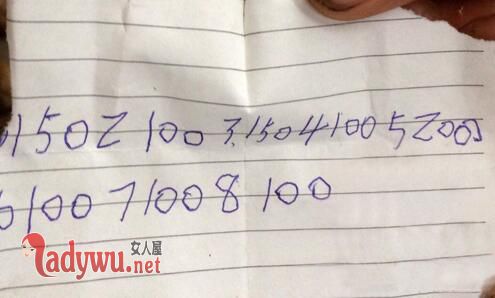 1502 100 3.1504100 5200
6100 7100 8 100
女人屋
Ladywu.net